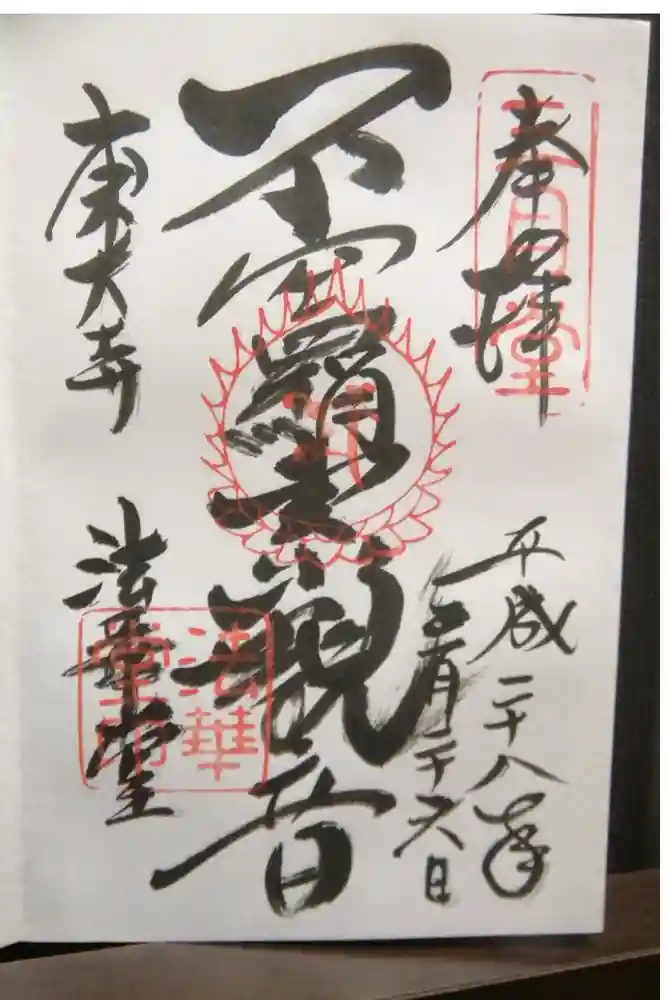 奉拝
三月堂
平成二十八年
月二十六日
不空羂索観音
東大寺
法華堂
法華堂印